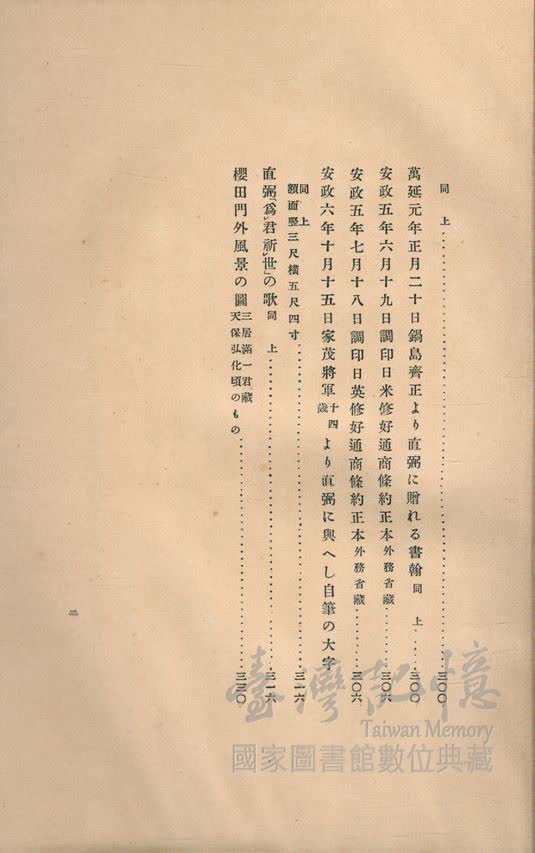 同上……三〇〇
萬延元年正月二十日鍋島齊正より直弼に贈れる書翰同上……三〇〇
安政五年六月十九日調印日米修好通商條約正本外務省藏……三〇六
安政五年七月十八日調印日英修好通商條約正本外務省藏……三〇六
安政六年十月十五日家茂將軍十四歲より直弼に與へし自筆の大字
同上
額面竪三尺橫五尺四寸……三一六
直弼「爲君祈世」の歌同上……三一六
櫻田門外風景の圖三居滿一君藏
天保弘化頃のもの……三三〇
三
臺灣記憶
Taiwan Memory
國家圖書館數位典藏